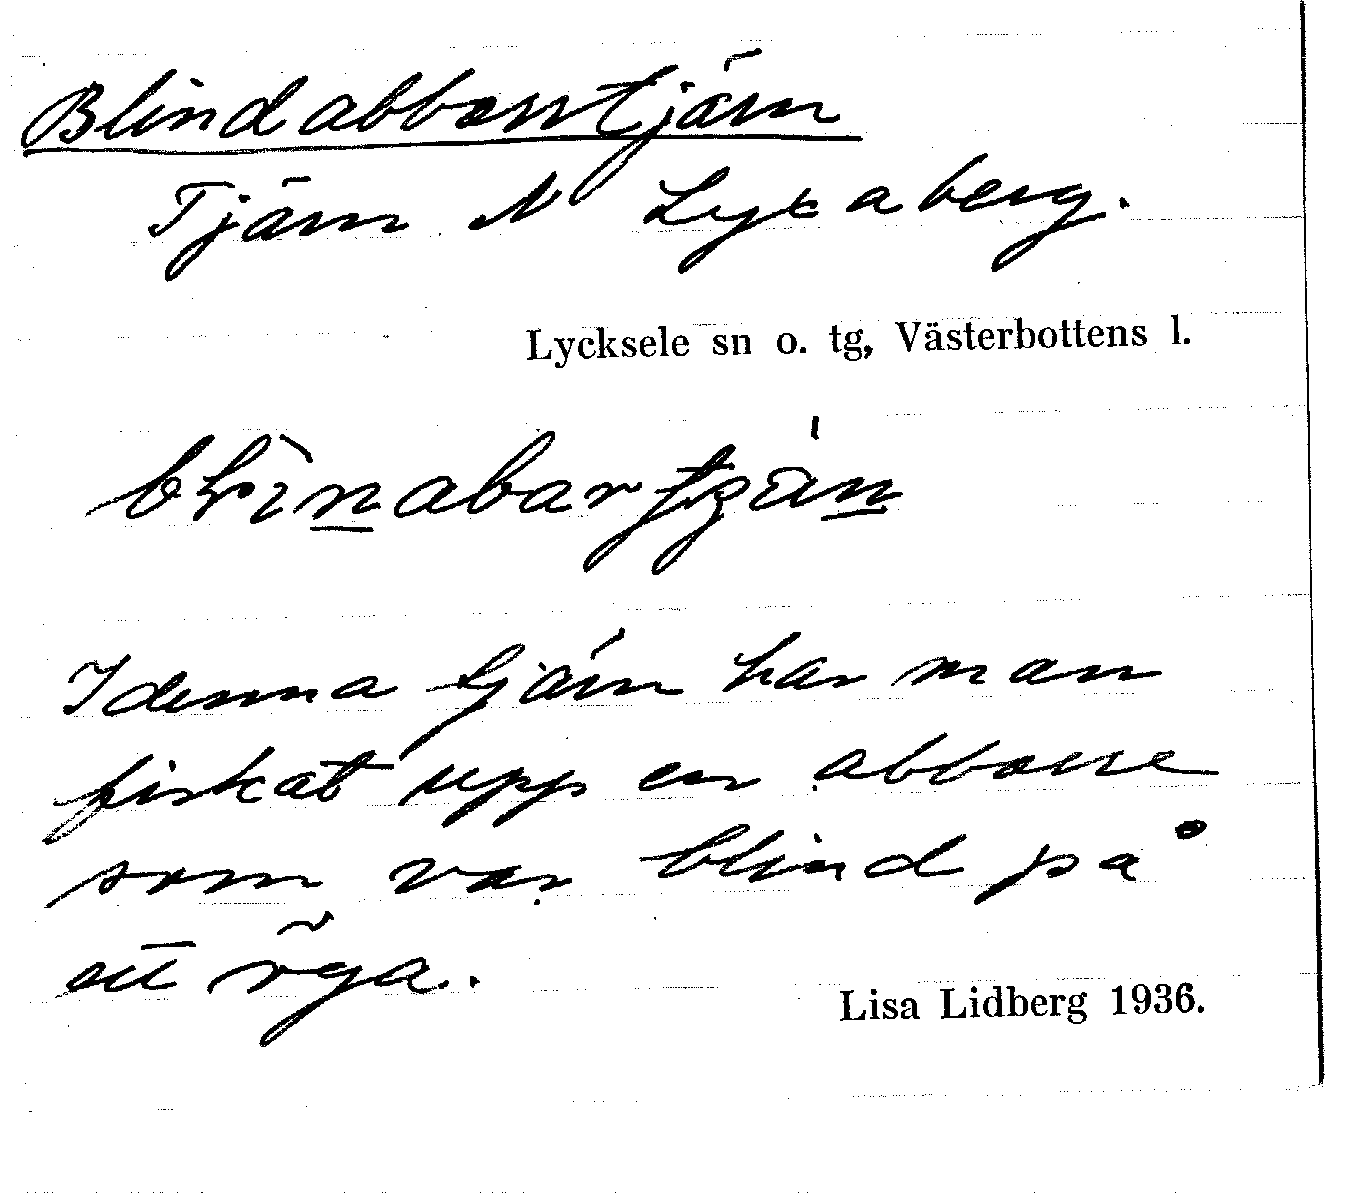 Blindabborrtjärn
Tjärn N Lyxaberg.
Lycksele sn o. tg, Västerbottens l.
I denna tjärn har man
fiskat upp en abborre
som var blind på
ett öga.
Lisa Lidberg 1936.